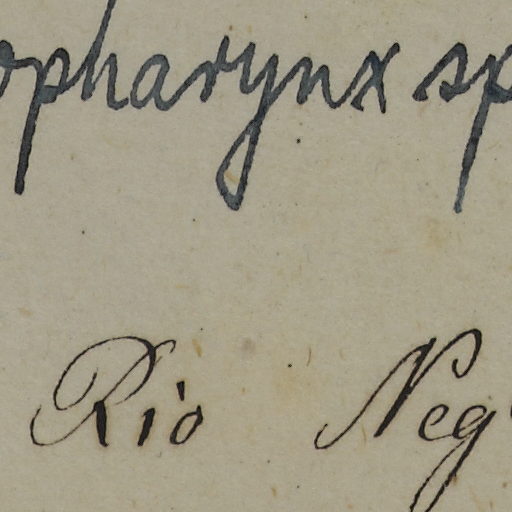 opharynx sp
Rio Neg